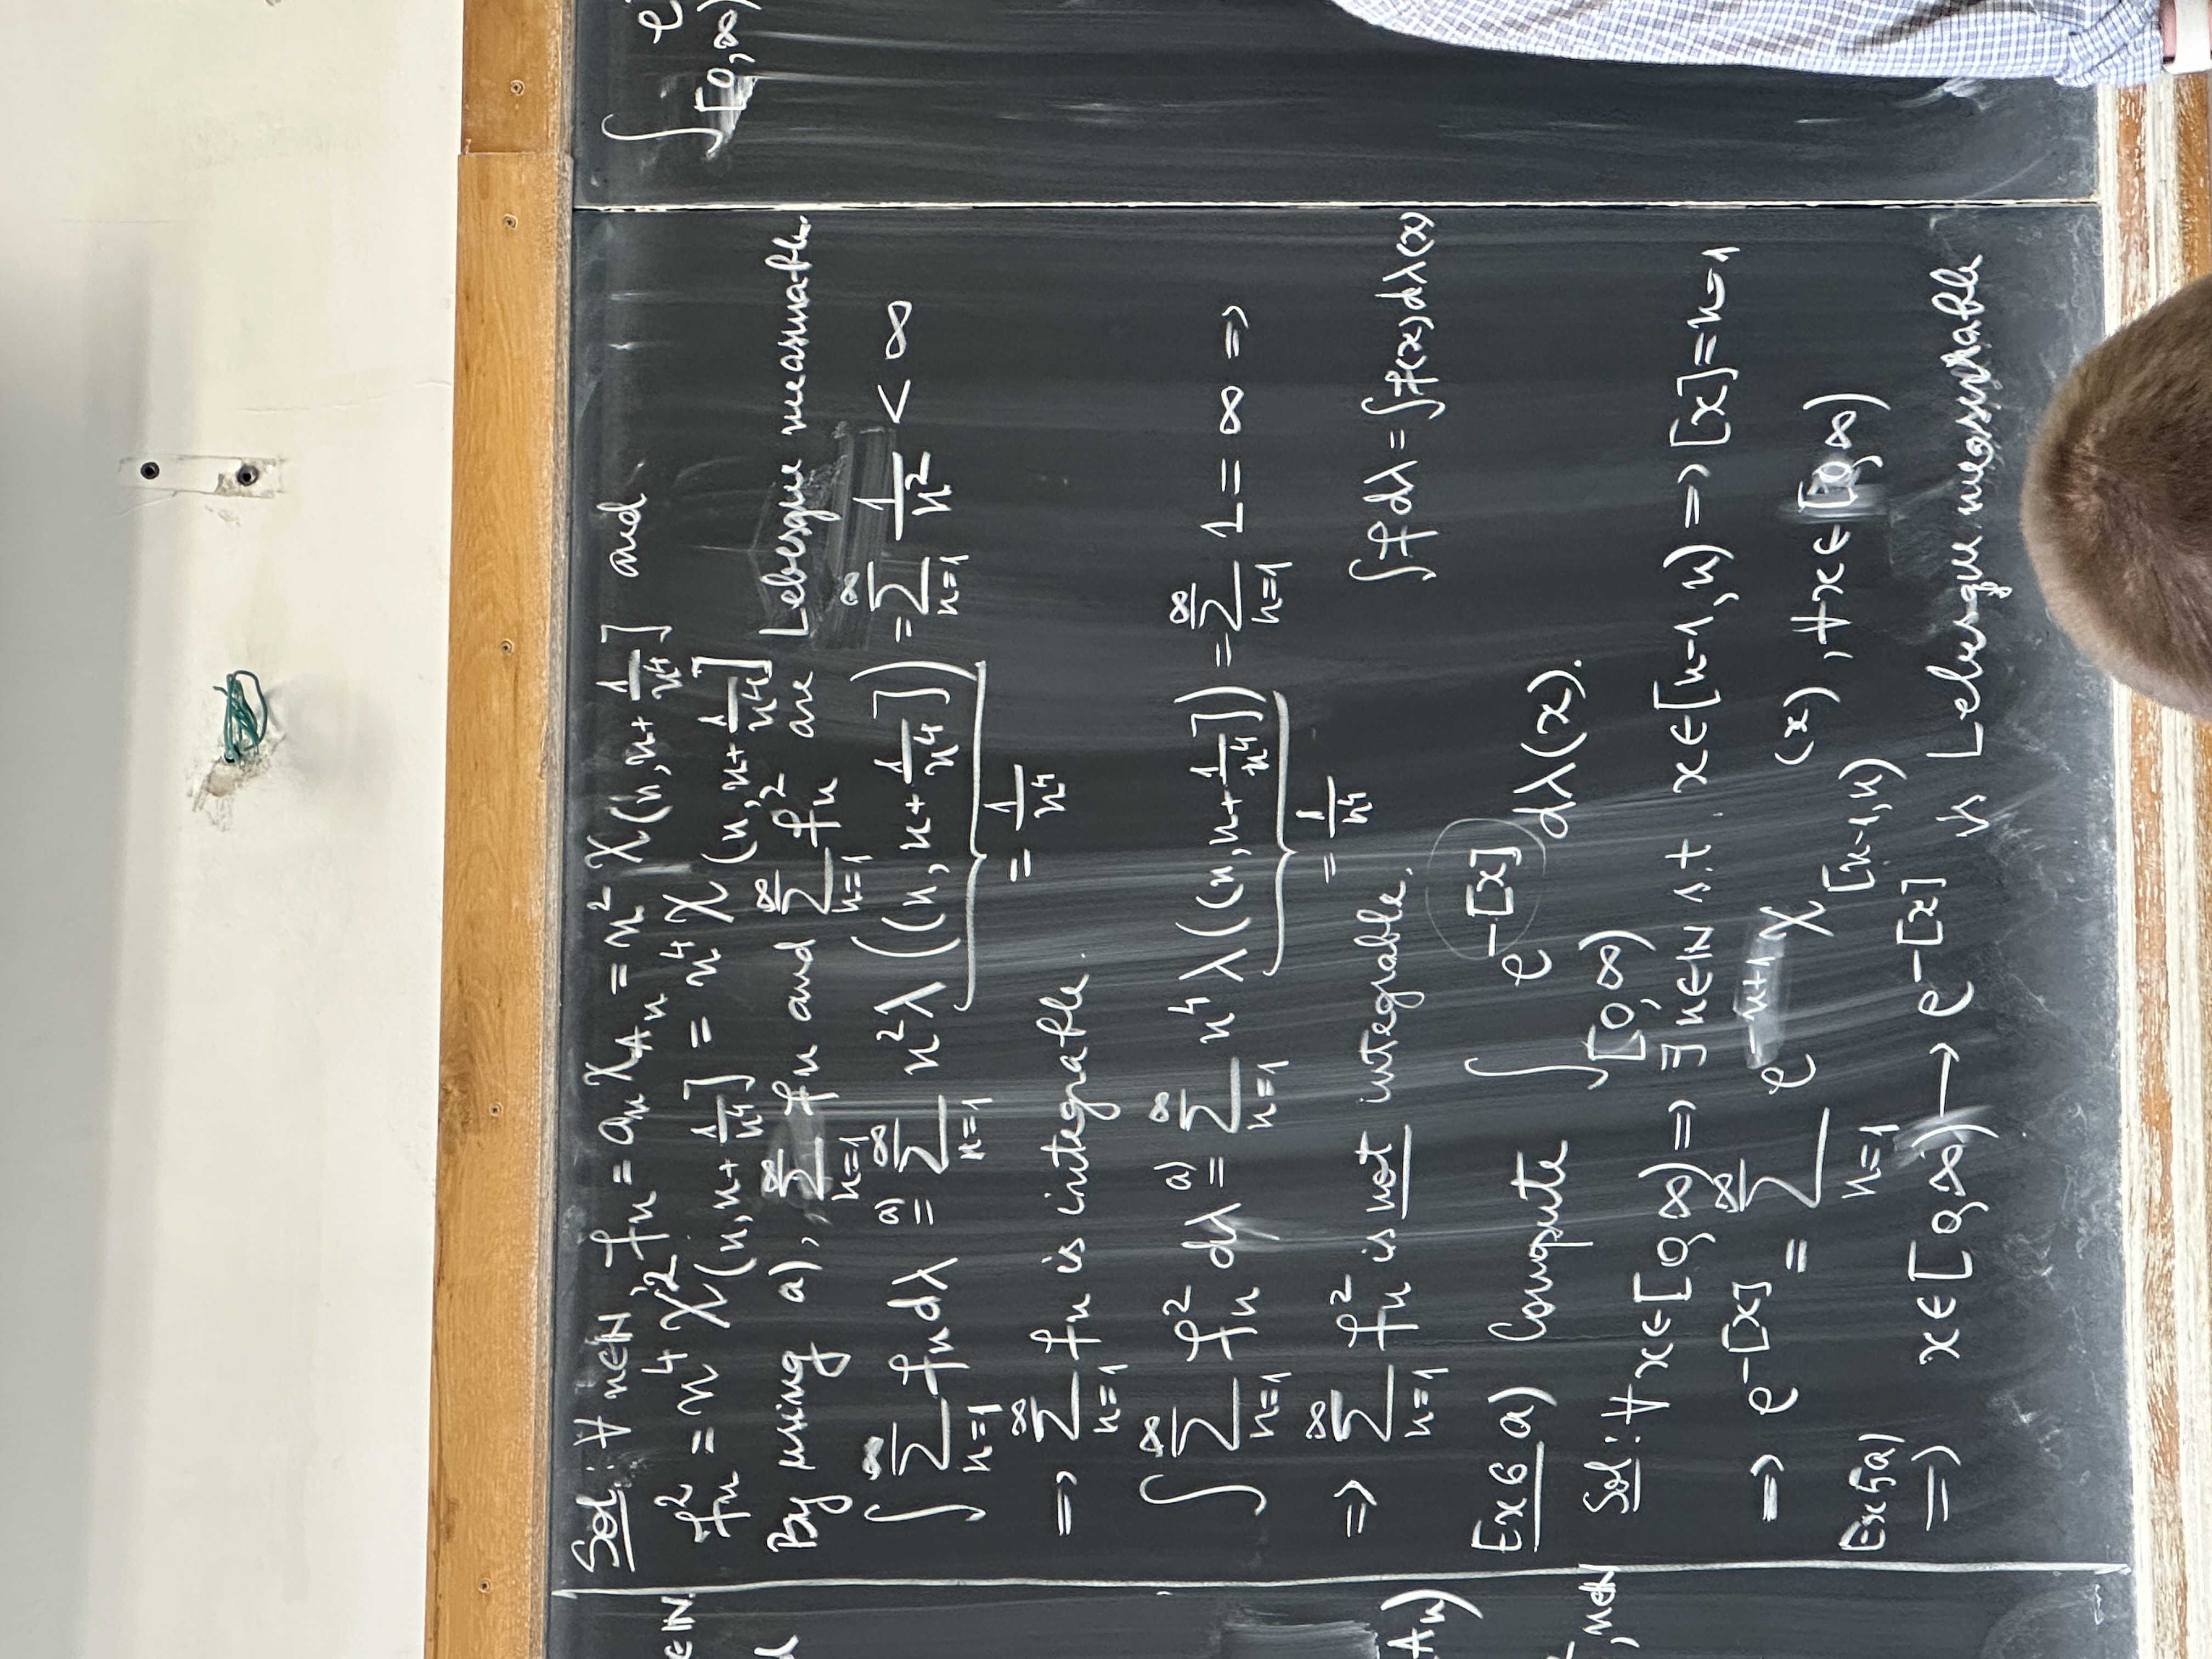 Sol: ∀ n∈ℕ, fₙ = aₙ χ_{Aₙ} = n² χ_{(n, n+1/n⁴]} and
fₙ² = n⁴ χ²_{(n, n+1/n⁴]} = n⁴ χ_{(n, n+1/n⁴]}
By using a), ∑_{n=1}^∞ fₙ and ∑_{n=1}^∞ fₙ² are Lebesgue measurable.
∫ ∑_{n=1}^∞ fₙ dλ =^{a)} ∑_{n=1}^∞ n² λ((n, n+1/n⁴]) = ∑_{n=1}^∞ 1/n² < ∞
= 1/n⁴
=> ∑_{n=1}^∞ fₙ is integrable.
∫ ∑_{n=1}^∞ fₙ² dλ =^{a)} ∑_{n=1}^∞ n⁴ λ((n, n+1/n⁴]) = ∑_{n=1}^∞ 1 = ∞ =>
= 1/n⁴
=> ∑_{n=1}^∞ fₙ² is not integrable.
∫f dλ = ∫f(x) dλ(x)
Ex 6 a) Compute ∫_{[0,∞)} e^{-[x]} dλ(x).
Sol: ∀ x∈[0,∞) => ∃ n∈ℕ s.t. x∈[n-1,n) => [x]=n-1
=> e^{-[x]} = ∑_{n=1}^∞ e^{-n+1} χ_{[n-1,n)}(x), ∀x∈[0,∞)
Ex 5a)
=> x∈[0,∞) → e^{-[x]} is Lebesgue measurable
∈ℕ.
Aₙ)
, n∈ℕ
∫_{[0,∞)} e